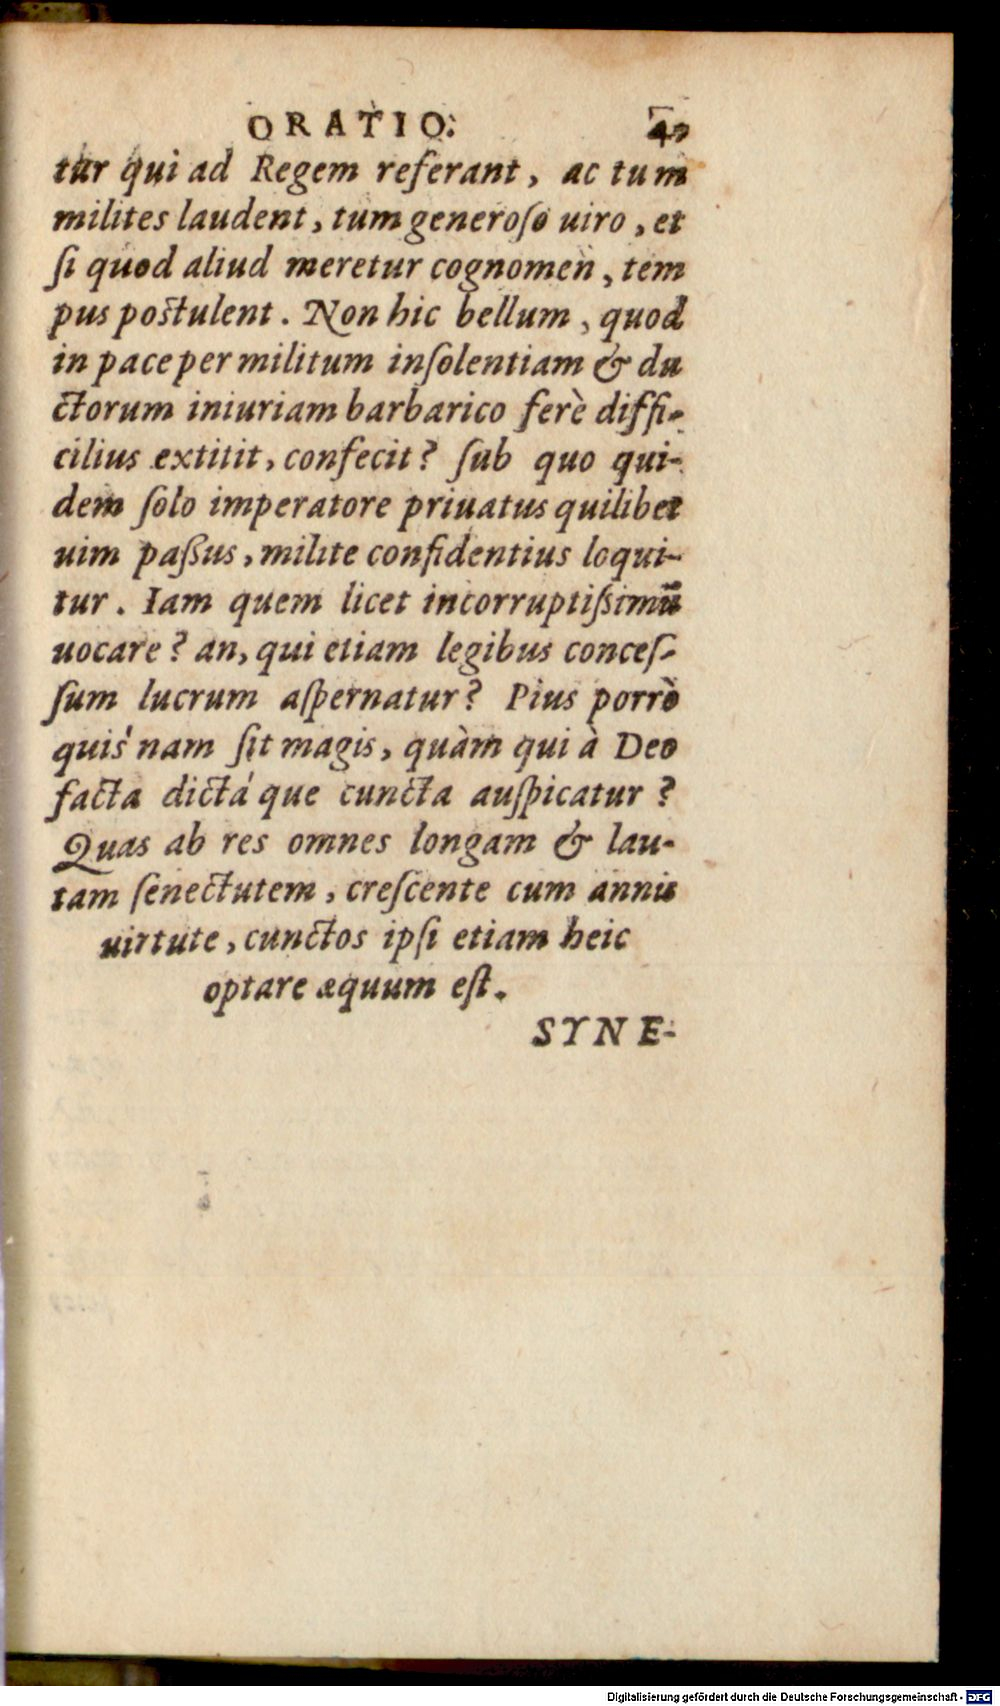 ORATIO.
tur qui ad Regem referant, ac tum
milites laudent, tum generoſo uiro, et
ſi quod aliud meretur cognomen, tem
pus poſtulent. Non hic bellum, quod
in pace per militum inſolentiam & du
ctorum iniuriam barbarico ferè diffi-
cilius extitit, confecit? ſub quo qui-
dem ſolo imperatore priuatus quilibet
uim paßus, milite confidentius loqui-
tur. Iam quem licet incorruptißimũ
uocare? an, qui etiam legibus conceſ-
ſum lucrum aſpernatur? Pius porrò
quis'nam ſit magis, quàm qui à Deo
facta dictá que cuncta auſpicatur?
Quas ab res omnes longam & lau-
tam ſenectutem, creſcente cum annis
uirtute, cunctos ipſi etiam heic
optare æquum eſt.
SYNE-
Digitalisierung gefördert durch die Deutsche Forschungsgemeinschaft - DFG